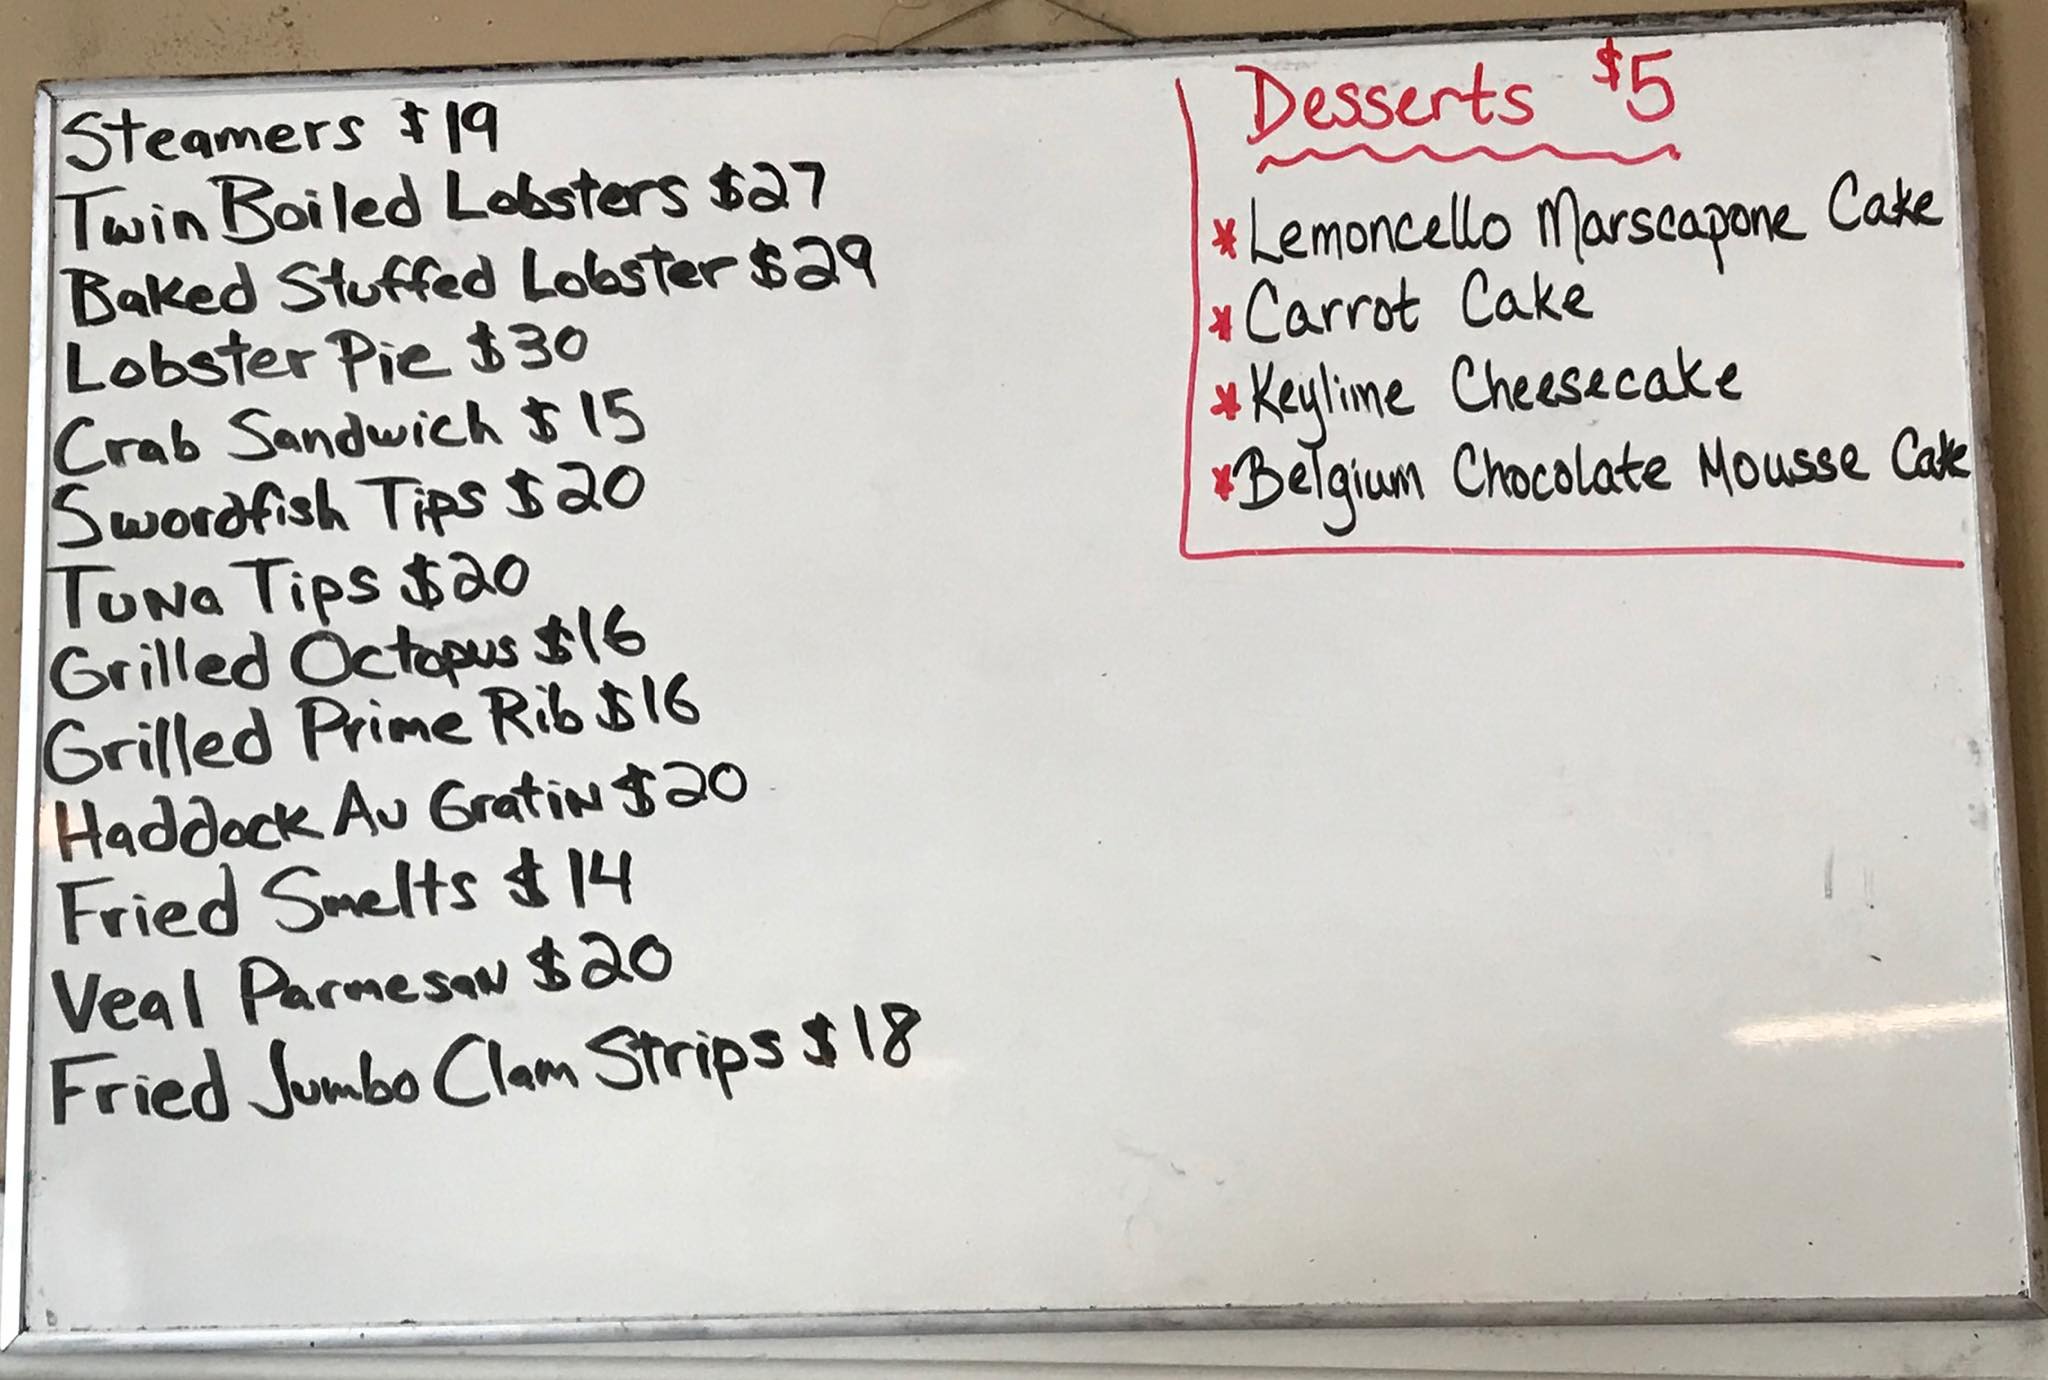 Steamers $19
Twin Boiled Lobsters $27
Baked Stuffed Lobster $29
Lobster Pie $30
Crab Sandwich $15
Swordfish Tips $20
Tuna Tips $20
Grilled Octopus $16
Grilled Prime Rib $16
Haddock Au Gratin $20
Fried Smelts $14
Veal Parmesan $20
Fried Jumbo Clam Strips $18
Desserts $5
*Lemoncello Marscapone Cake
*Carrot Cake
*Keylime Cheesecake
*Belgium Chocolate Mousse Cake